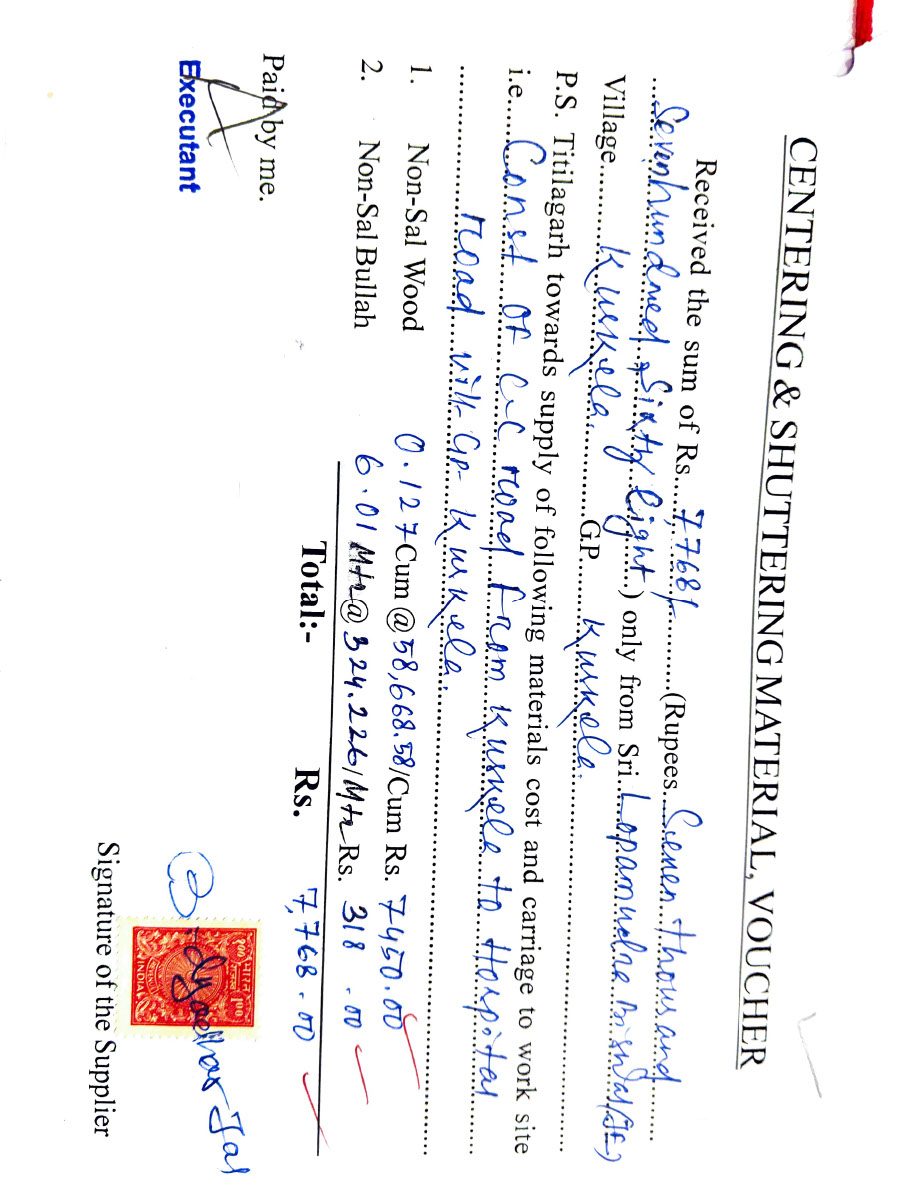 CENTERING & SHUTTERING MATERIAL, VOUCHER
Received the sum of Rs......7,768/.......(Rupees...Seven thousand.......
...Sevenhundred Sixty Eight...) only from Sri..Lopamudra Biswal(JE)
Village......Kuskela.......GP.......Kuskela.......
P.S. Titilagarh towards supply of following materials cost and carriage to work site
i.e....Const of C.C road from Kuskela to Hospital
road with GP- Kuskela.
1. Non-Sal Wood 0.127Cum @58,668.58/Cum Rs. 7450.00
2. Non-Sal Bullah 6.01 Mtr@324.226/Mtr Rs. 318.00
Total:- Rs. 7,768.00
Paid by me.
Executant
1.00 भारत 1.00
INDIA
Jal
Signature of the Supplier